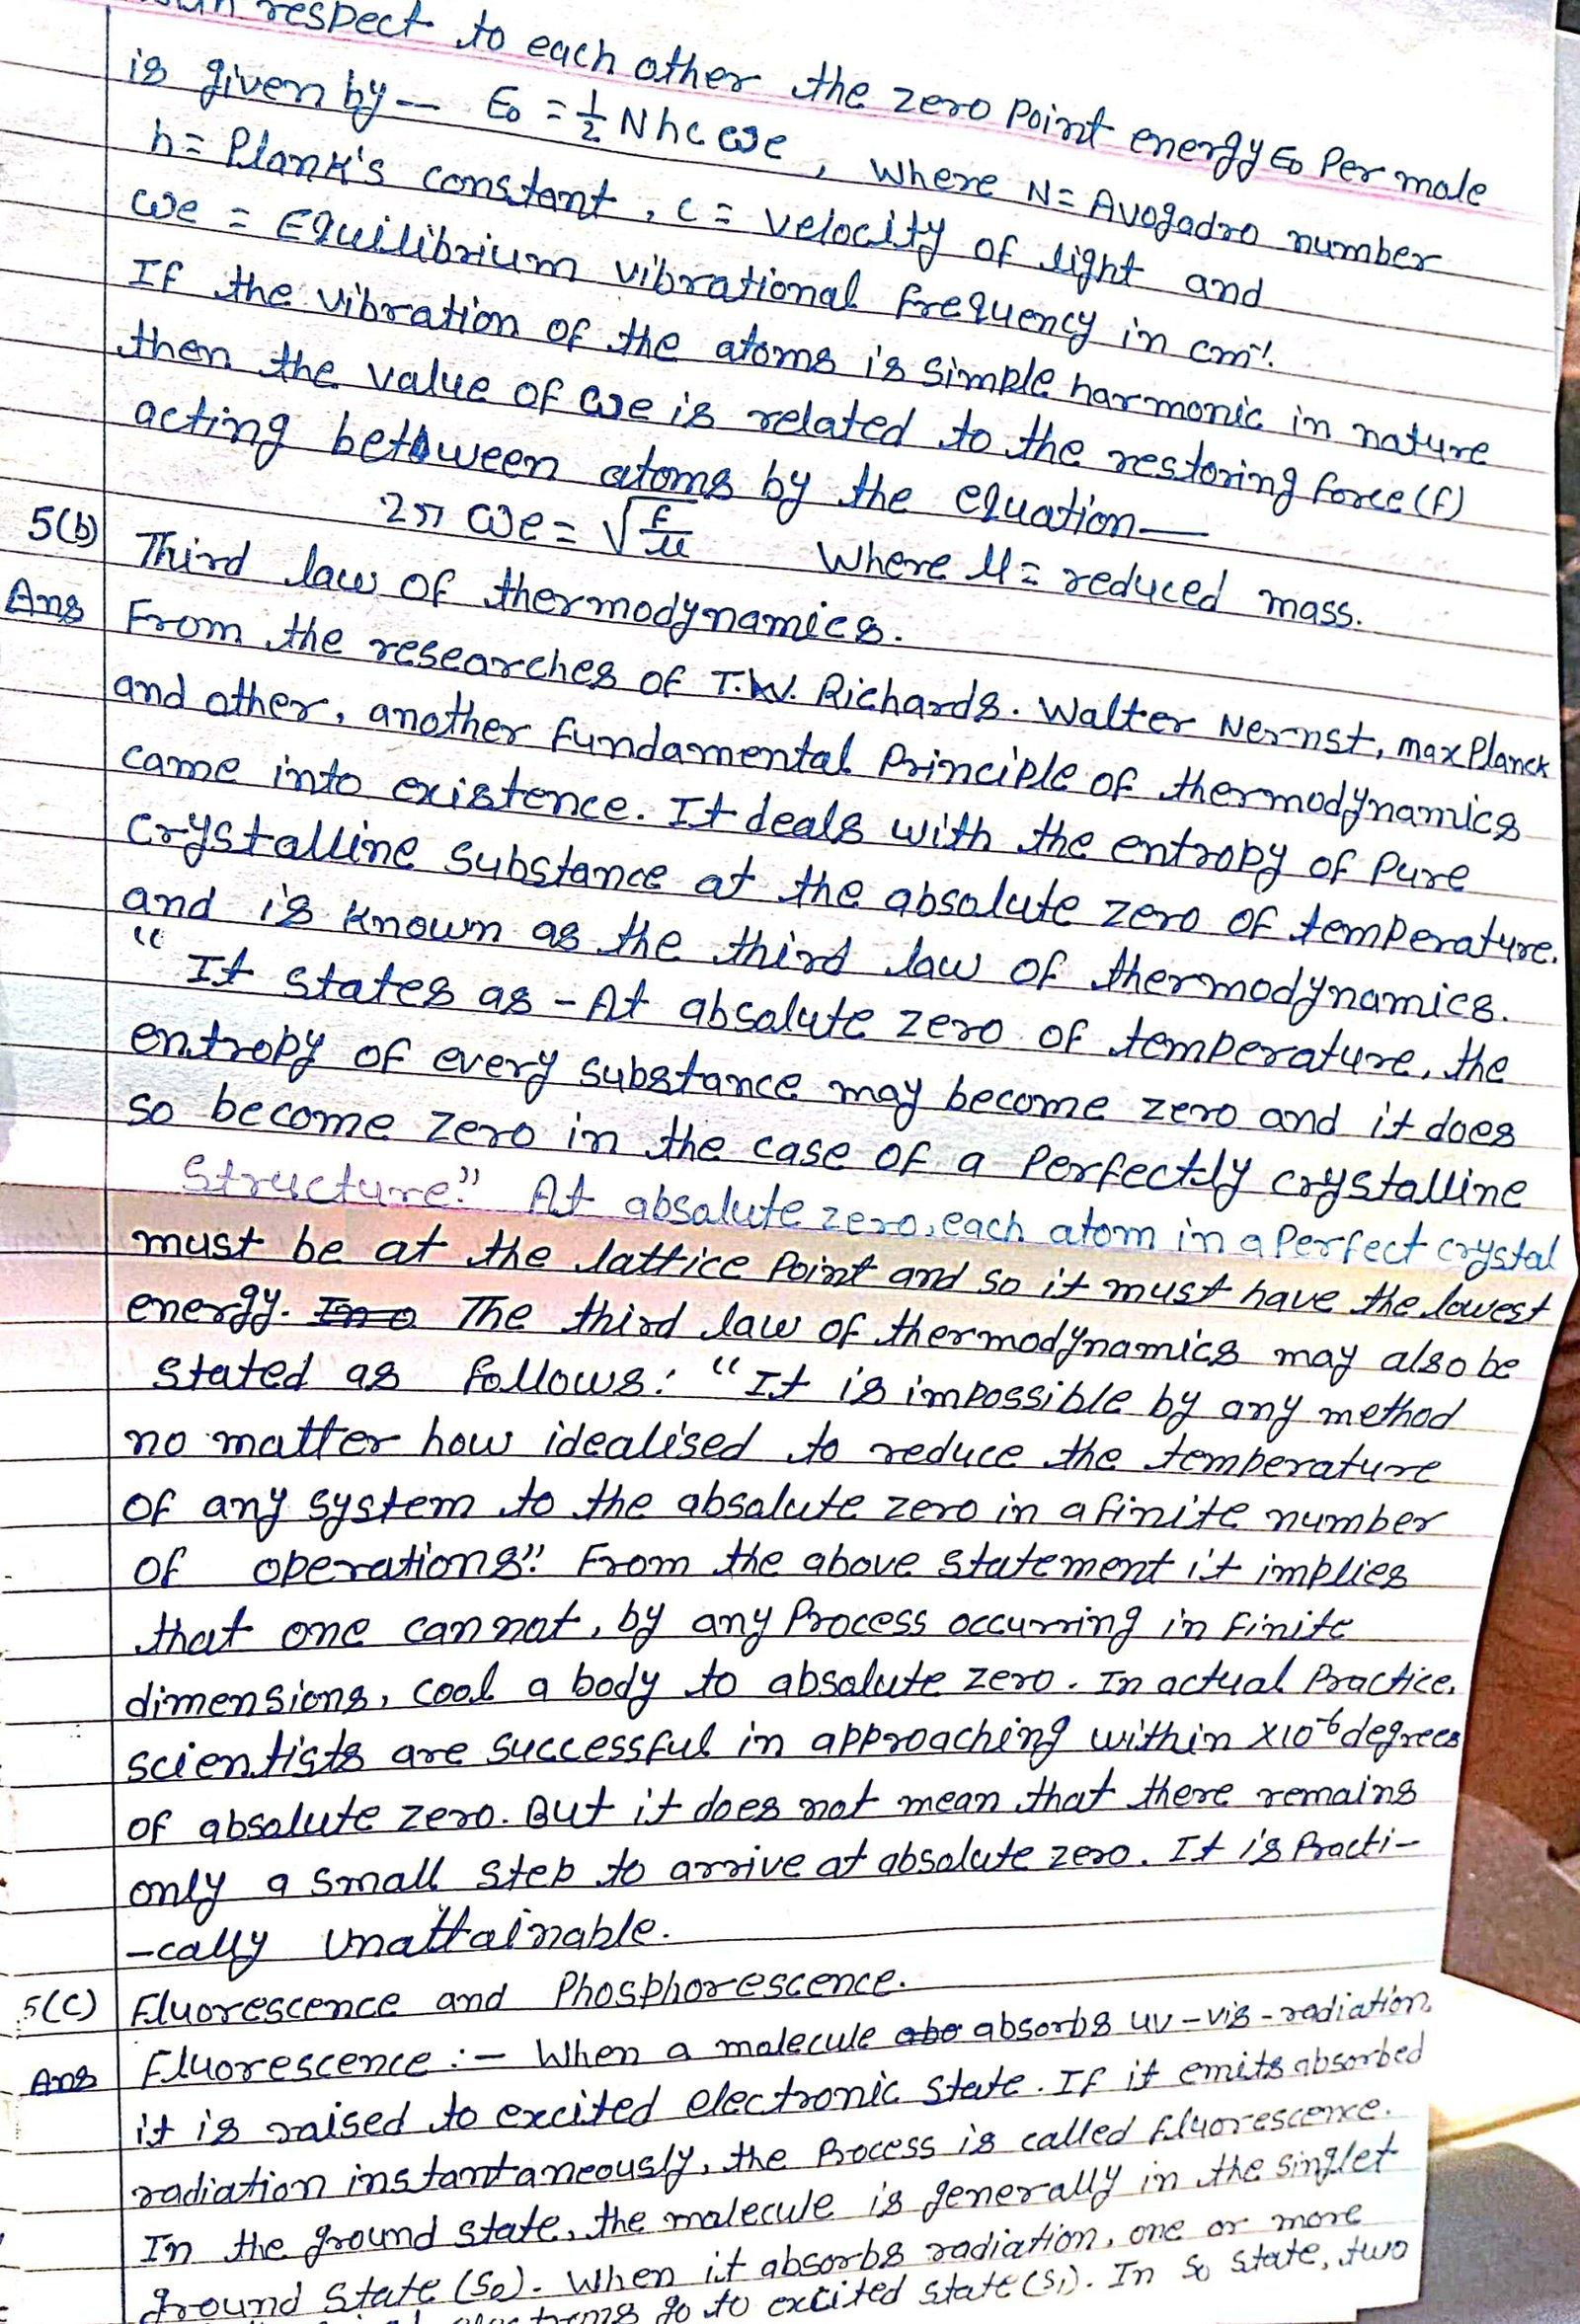 respect to each other the zero Point energy E₀ Per mole
is given by — E₀ = 1/2 Nhcωe, where N = Avogadro number
h = Plank's constant, c = velocity of light and
ωe = Equilibrium vibrational frequency in cm⁻¹.
If the vibration of the atoms is simple harmonic in nature
then the value of ωe is related to the restoring force (f)
acting between atoms by the equation —
2π ωe = √(F/μ) Where μ = reduced mass.
5(b) Third law of thermodynamics.
Ans From the researches of T.W. Richards. Walter Nernst, max Planck
and other, another fundamental Principle of thermodynamics
came into existence. It deals with the entropy of Pure
Crystalline substance at the absolute zero of temperature.
and is known as the third law of thermodynamics.
“It states as - At absolute zero of temperature, the
entropy of every substance may become zero and it does
so become zero in the case of a Perfectly crystalline
Structure.” At absolute zero, each atom in a Perfect crystal
must be at the lattice Point and so it must have the lowest
energy. The third law of thermodynamics may also be
stated as follows: “It is impossible by any method
no matter how idealised to reduce the temperature
of any system to the absolute zero in a finite number
of operations”. From the above statement it implies
that one can not, by any Process occurring in finite
dimensions, cool a body to absolute zero. In actual Practice,
scientists are successful in approaching within x10⁻⁶ degrees
of absolute zero. But it does not mean that there remains
only a small step to arrive at absolute zero. It is Practi-
-cally Unattainable.
5(C) Fluorescence and Phosphorescence.
Ans Fluorescence :- When a molecule absorbs uv-vis-radiation,
it is raised to excited electronic state. If it emits absorbed
radiation instantaneously, the Process is called fluorescence.
In the ground state, the molecule is generally in the singlet
ground state (S₀). When it absorbs radiation, one or more
go to excited state (S₁). In S₀ state, two